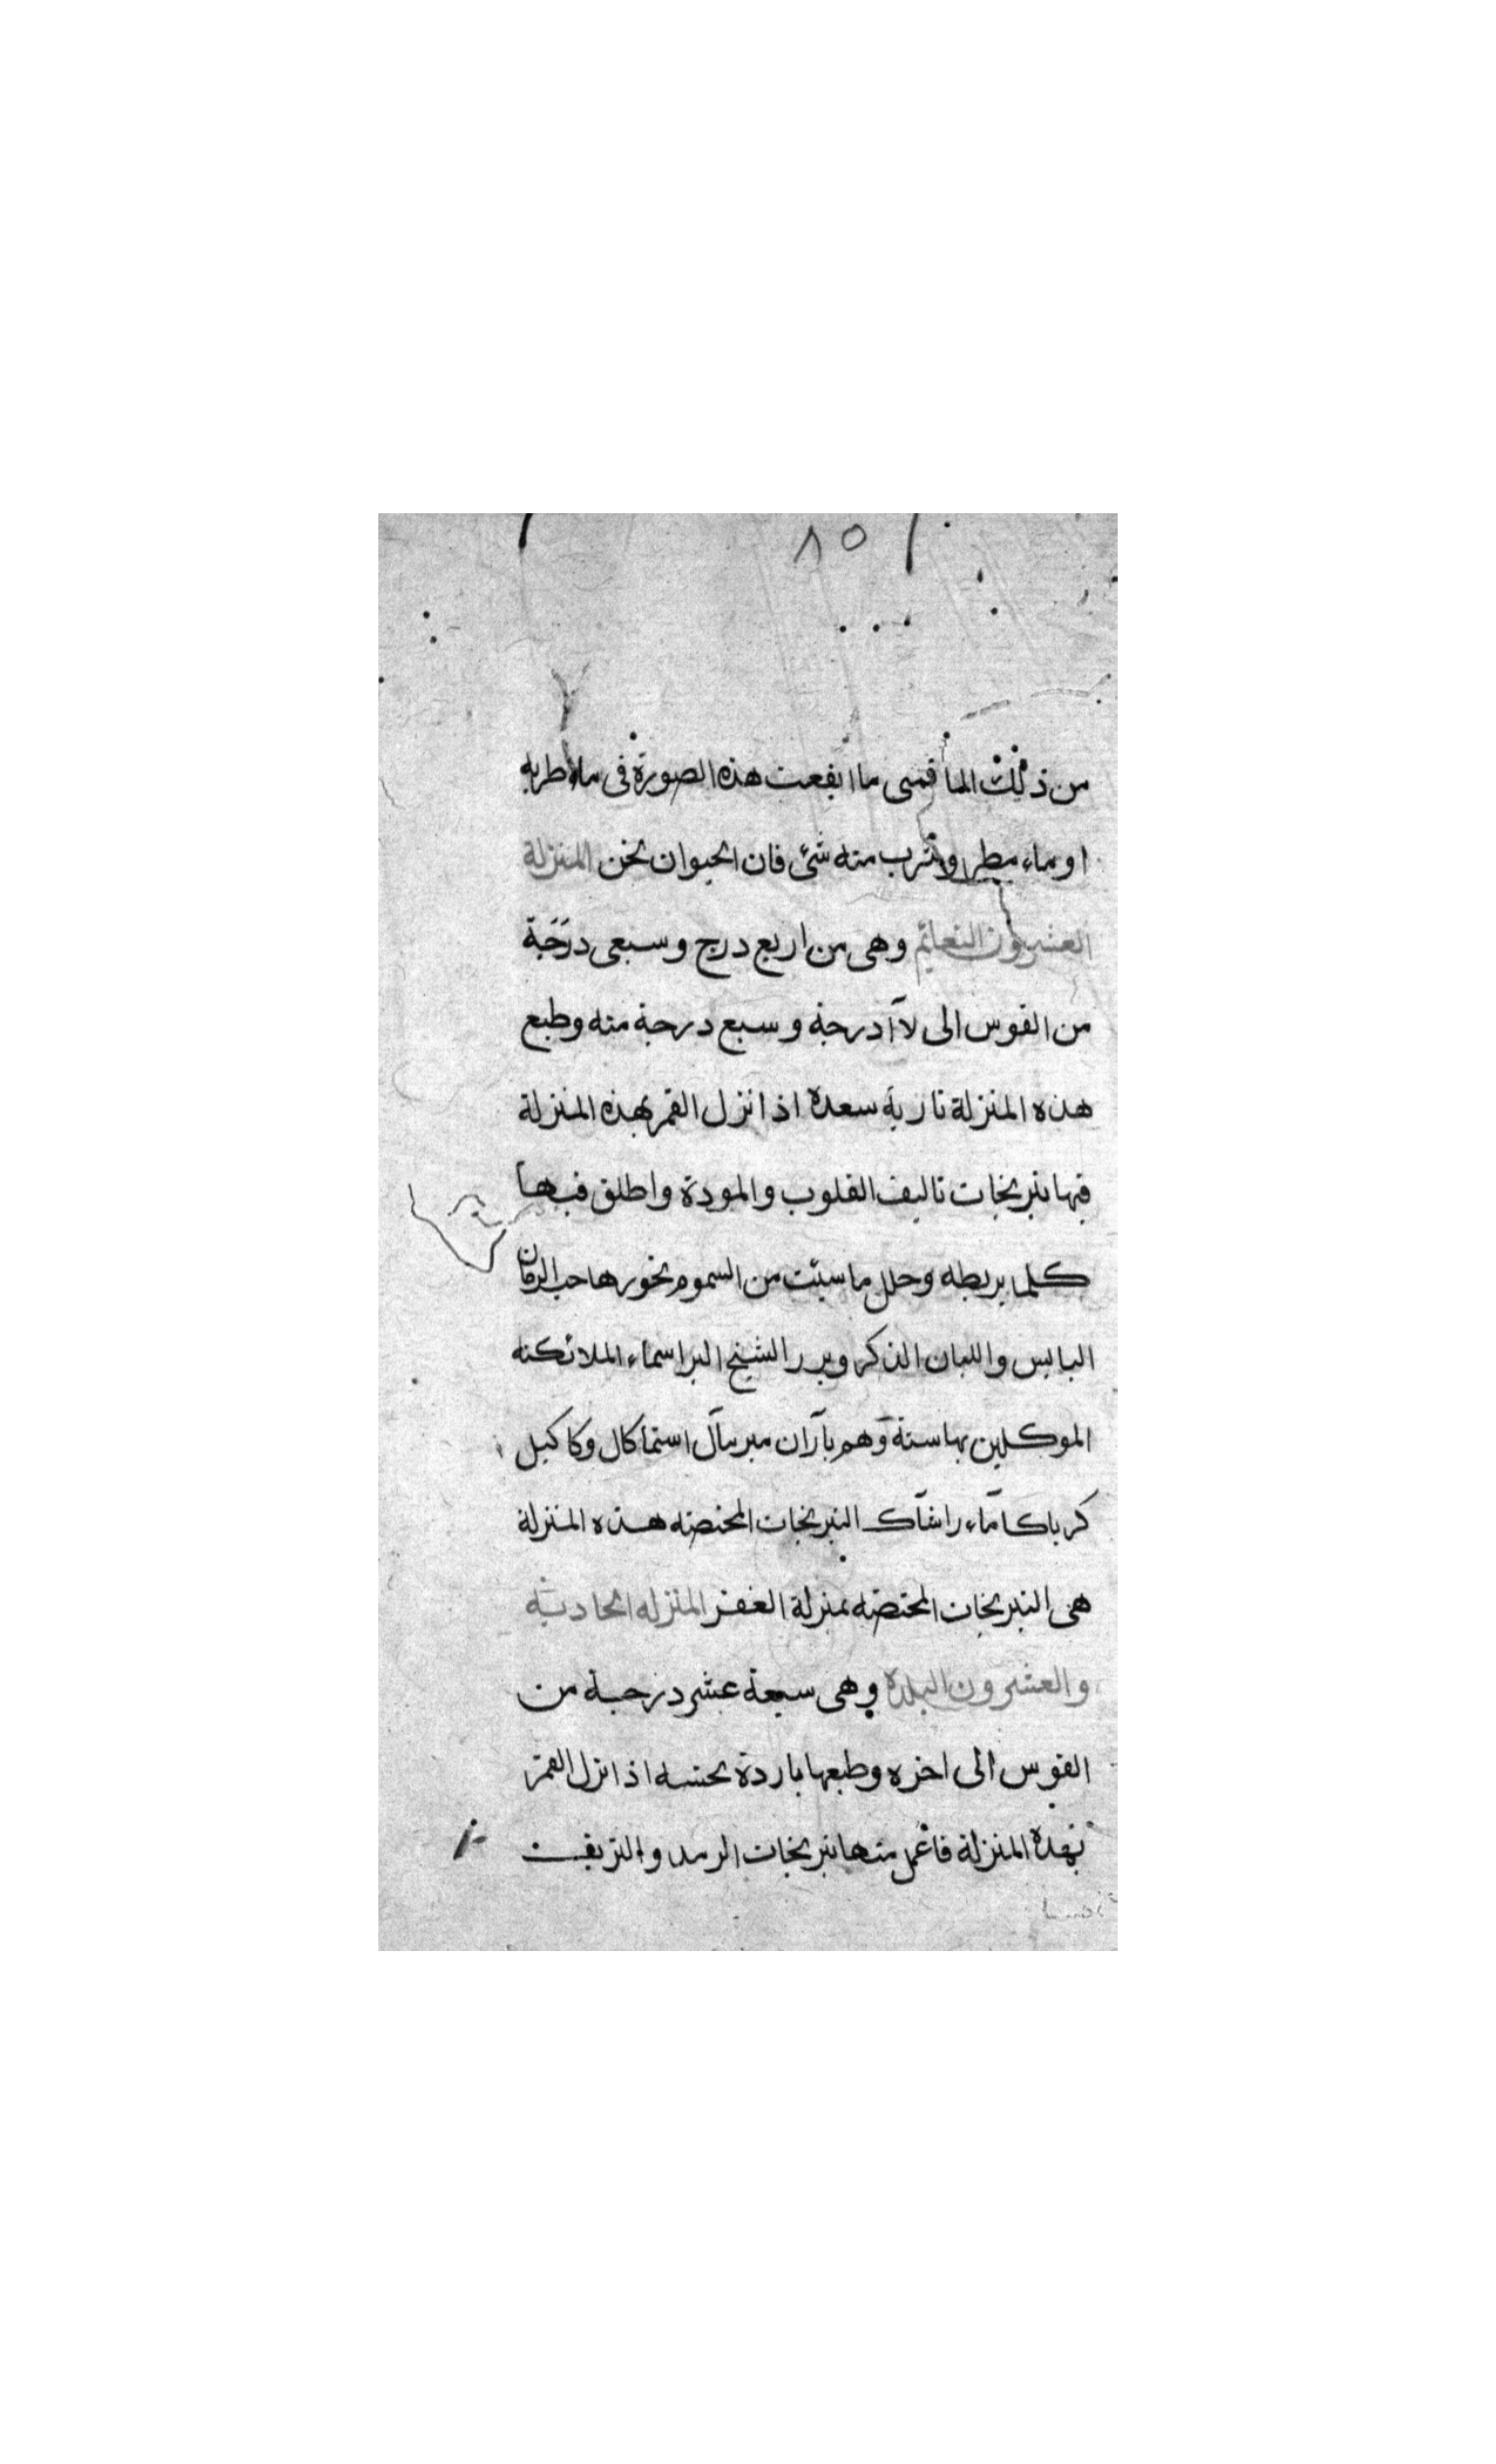 ٨٥
من ذلك الماء فمتى ما انفعت هذه الصورة فى ماء طريه
او ماء مطر وشرب منه شئ فان الحيوان يخن المنزلة
العشرون النعايم وهى من اربع درج وسبعى درجة
من القوس الى درجة وسبع درجة منه وطبع
هذه المنزلة نارية سعدة اذا نزل القمر بهذه المنزلة
فيها نيرنجات تاليف القلوب والمودة واطلق فيها
كلما بربطه وحلل ما سئت من السموم بخورها حب الرمان
اليابس واللبان الذكر وبرر الشيح البر اسماء الملائكته
الموكلين بها ستة وهم باران ميريال استماكال وكاكيل
كرباكاماء راشاك النيرنجات المختصه هذه المنزلة
هى النيرنجات المختصه بمنزلة الغفر المنزله الحاديه
والعشرون البلدة وهى سبعة عشر درجة من
القوس الى اخره وطبعها باردة نحسه اذا نزل القمر
بهذه المنزلة فاعمل منها نيرنجات الرمد والنزيف